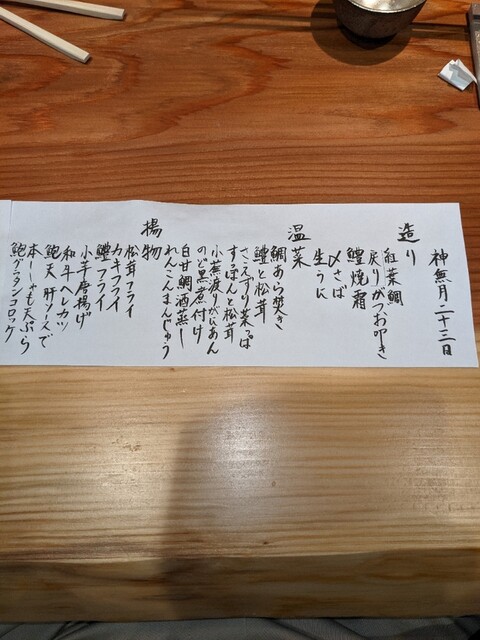 神無月二十三日
造り
紅葉鯛
戻りがつお叩き
鱧焼霜
〆さば
生うに
温菜
鯛あら焚き
鱧と松茸
さえずり菜っぱ
すっぽんと松茸
小蕪渡りがにあん
のど黒煮付け
白甘鯛酒蒸し
れんこんまんじゅう
揚物
松茸フライ
カキフライ
鱧フライ
小芋唐揚げ
和牛ヘレカツ
鮑天 肝ソースで
本ししゃも天ぷら
鮑グラタンコロッケ